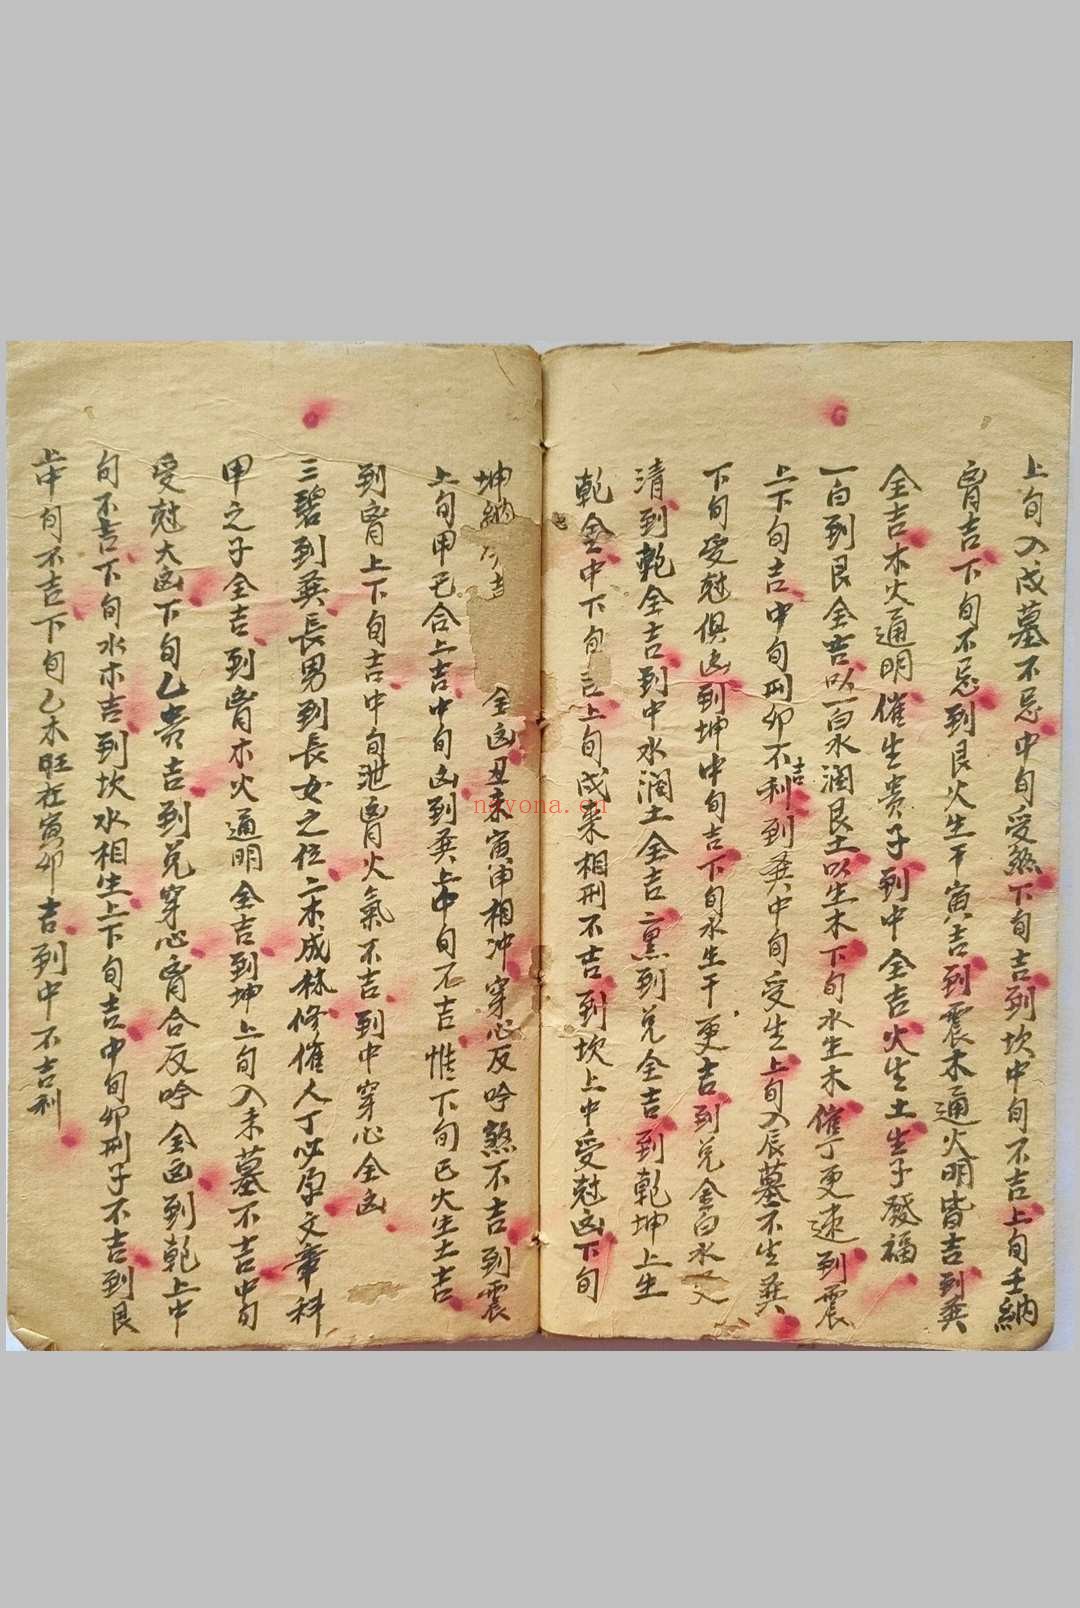 上旬入戌墓不忌中旬受煞下旬吉到坎中旬不吉上旬壬納
離吉下旬不忌到艮火生干寅吉到震木通火明皆吉到巽
全吉木火通明催生贵子到中全吉火生土生子發福
一白到艮全吉以一白水润艮土以生木下旬水生木催丁更速到震
上下旬吉中旬刑卯不利吉到巽中旬受生上旬入辰墓不生巽
下旬受尅俱凶到坤中旬吉下旬水生干更吉到兑金白水又
清到乾全吉到中水润土全吉二黑到兑全吉到乾坤上生
乾金中下旬吉上旬戌来相刑不吉到坎上中受尅凶下旬
坤納 吉 全凶丑未寅申相冲穿心反吟煞不吉到震
上旬甲己合上吉中旬凶到巽上中旬不吉惟下旬巳火生土吉
到離上下旬吉中旬泄離火氣不吉到中穿心全凶
三碧到巽長男到長女之位二木成林修催人丁必孕文章科
甲之子全吉到離木火通明全吉到坤上旬入未墓不吉中旬
受尅大凶下旬乙贵吉到兑穿心離合反吟全凶到乾上中
旬不吉下旬水木吉到坎水相生上下旬吉中旬卯刑子不吉到艮
上中旬不吉下旬乙木旺在寅卯吉到中不吉利
nayona.cn